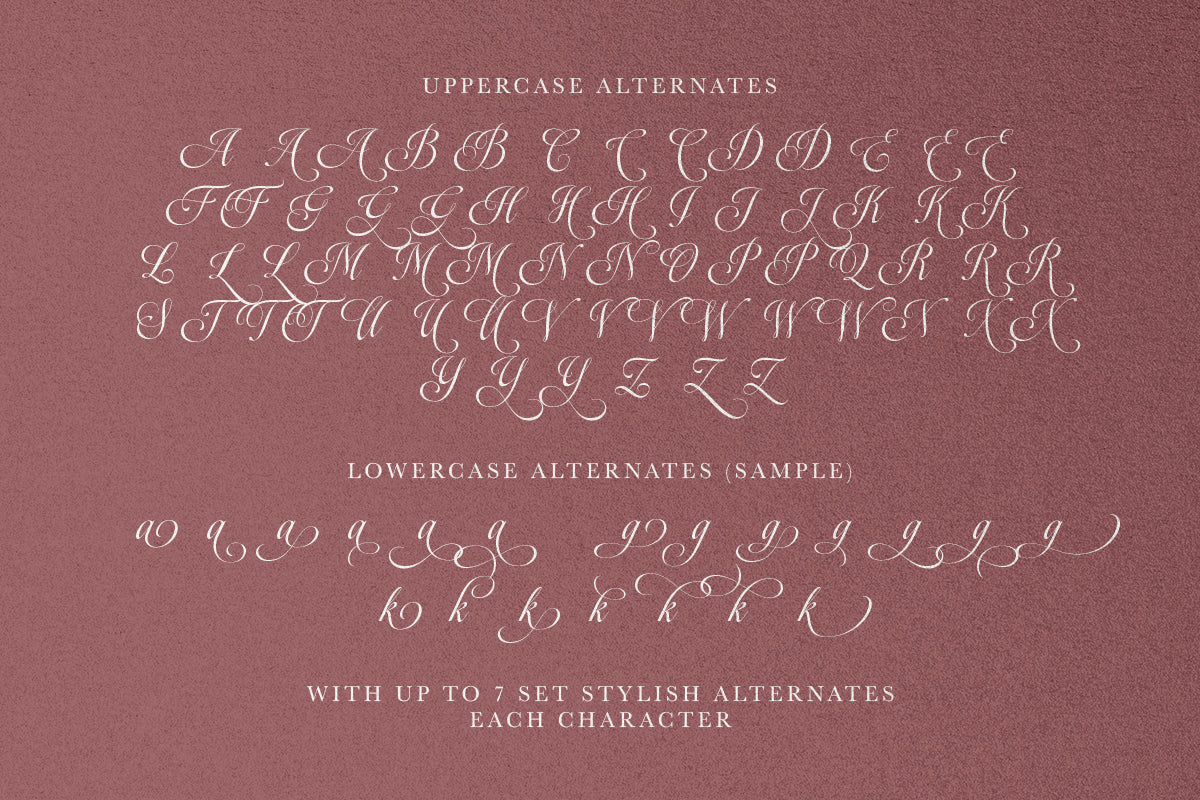 UPPERCASE ALTERNATES
A A A B B C C C D D E E E
F F G G G H H H I J J K K K
L L L M M M N N O P P Q R R R
S T T T U U U V V V W W W X X X
Y Y Y Z Z Z
LOWERCASE ALTERNATES (SAMPLE)
a a a a a a g g g g g g g
k k k k k k k
WITH UP TO 7 SET STYLISH ALTERNATES
EACH CHARACTER